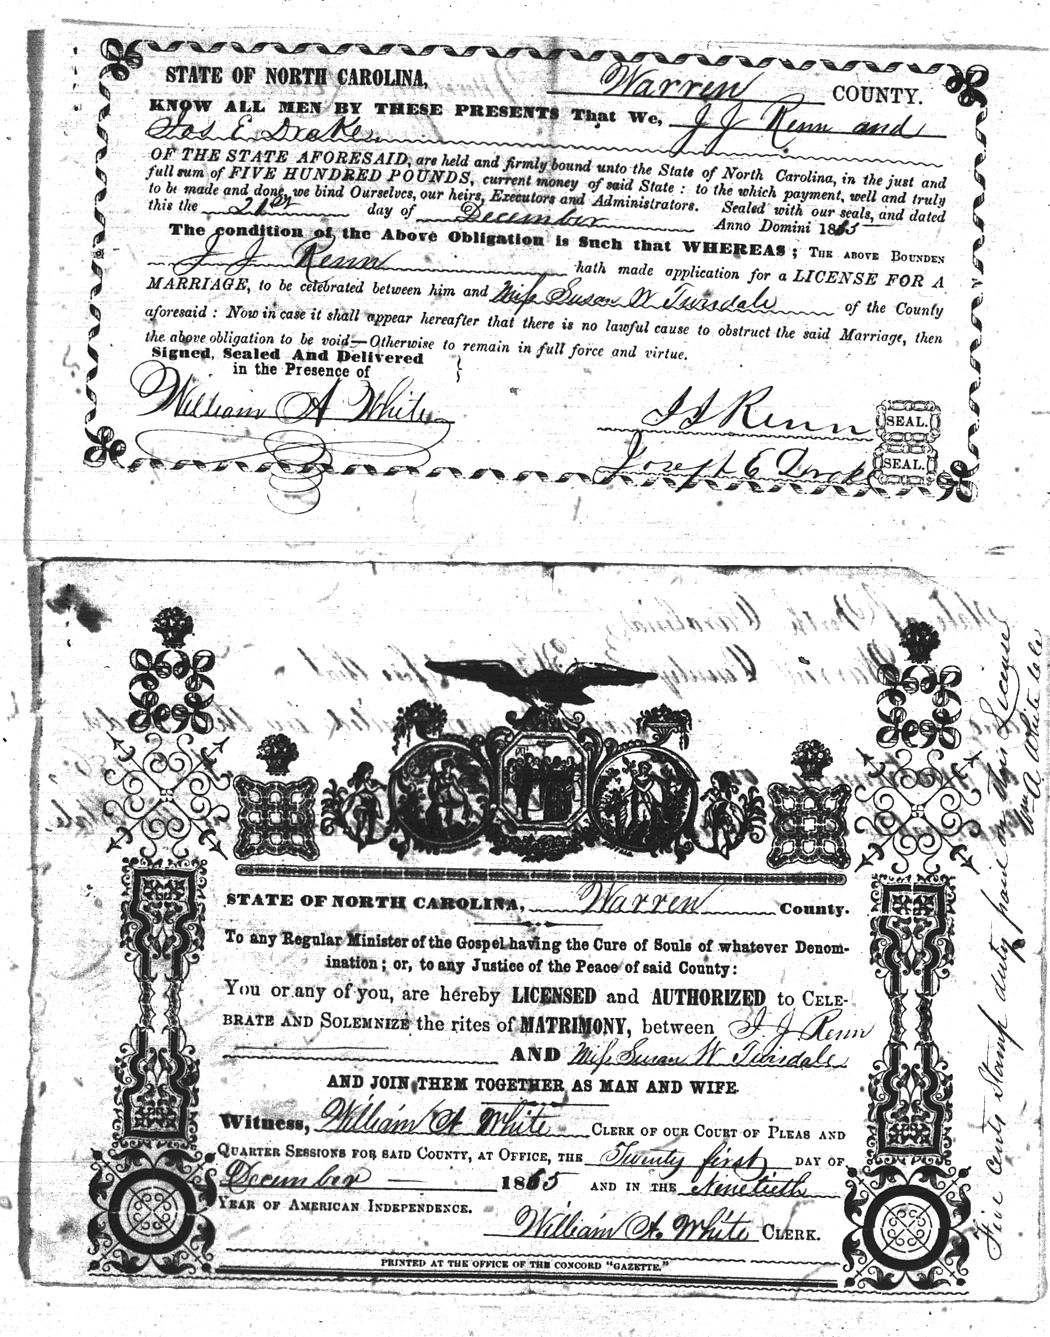 STATE OF NORTH CAROLINA, Warren COUNTY.
KNOW ALL MEN BY THESE PRESENTS That We, J J Renn and
Jos E. Drake
OF THE STATE AFORESAID, are held and firmly bound unto the State of North Carolina, in the just and
full sum of FIVE HUNDRED POUNDS, current money of said State: to the which payment, well and truly
to be made and done, we bind Ourselves, our heirs, Executors and Administrators. Sealed with our seals, and dated
this the 21st day of December Anno Domini 1865
The condition of the Above Obligation is Such that WHEREAS; THE ABOVE BOUNDEN
J J Renn hath made application for a LICENSE FOR A
MARRIAGE, to be celebrated between him and Miss Susan W Twisdale of the County
aforesaid: Now in case it shall appear hereafter that there is no lawful cause to obstruct the said Marriage, then
the above obligation to be void—Otherwise to remain in full force and virtue.
Signed, Sealed And Delivered
in the Presence of
William A White
J J Renn SEAL.
Joseph E Drake SEAL.
STATE OF NORTH CAROLINA, Warren County.
To any Regular Minister of the Gospel having the Cure of Souls of whatever Denom-
ination; or, to any Justice of the Peace of said County:
You or any of you, are hereby LICENSED and AUTHORIZED to CELE-
BRATE AND SOLEMNIZE the rites of MATRIMONY, between J. J Renn
AND Miss Susan W Twisdale
AND JOIN THEM TOGETHER AS MAN AND WIFE.
Witness, William A White CLERK OF OUR COURT OF PLEAS AND
QUARTER SESSIONS FOR SAID COUNTY, AT OFFICE, THE Twenty first DAY OF
December 1865 AND IN THE Ninetieth
YEAR OF AMERICAN INDEPENDENCE.
William A. White CLERK.
PRINTED AT THE OFFICE OF THE CONCORD "GAZETTE."
Five cents Stamp duty paid on this License
Wm A White clk